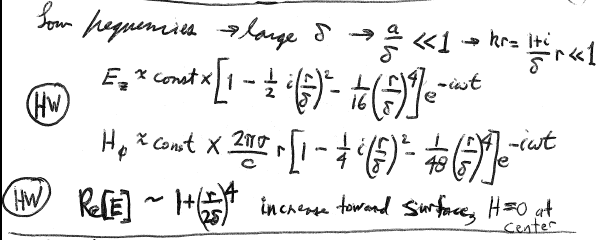 Low frequencies → large δ → a/δ ≪ 1 → kr = (1+i)/δ r ≪ 1
E_z ≈ const × [1 - 1/2 i(r/δ)² - 1/16 (r/δ)⁴] e^{-iωt}
HW
H_φ ≈ const × 2πσ/c r [1 - 1/4 i(r/δ)² - 1/48 (r/δ)⁴] e^{-iωt}
HW Re[E] ~ 1+(r/2δ)⁴ increase toward surface, H=0 at
center